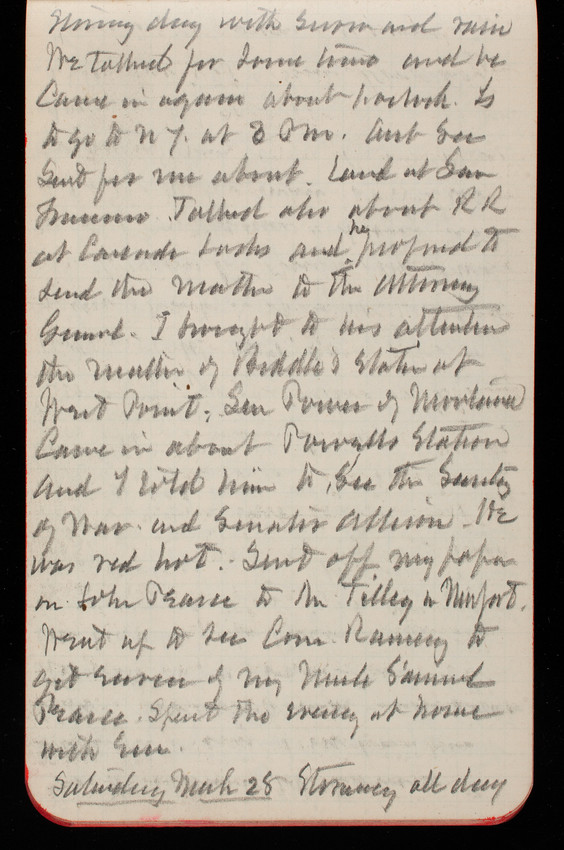 Stormy day with snow and rain
We talked for some time and he
Came in again about hoclock. Is
to go to N Y. at 3 P m. Aut Gen
Sent for me about Land at San
Francisco. Talked also about R R
at Cascade Locks and he proposed to
send the matter to the Attorney
General. I brought to his attention
the matter of Biddle's Statue at
West Point. Sen Power of Montana
Came in about Station
and I told him to see the Secretary
of War and Senator Allison. He
was red hot. Sent off my paper
on John Pearce to Mr Tilley in Newport.
Went up to see Com Ramsey to
get service of my Uncle Samuel
Pearce. Spent the evening at home
with Em.
Saturday March 28 Stormy all day